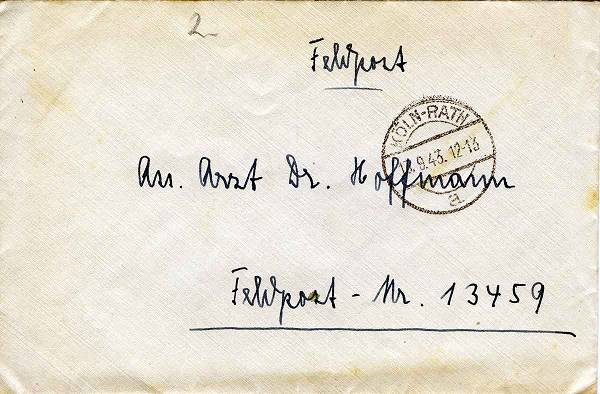 2
Feldpost
KÖLN-RATH
9.43.12-13
a
An. Arzt Dr. Hoffmann
Feldpost-Nr. 13459